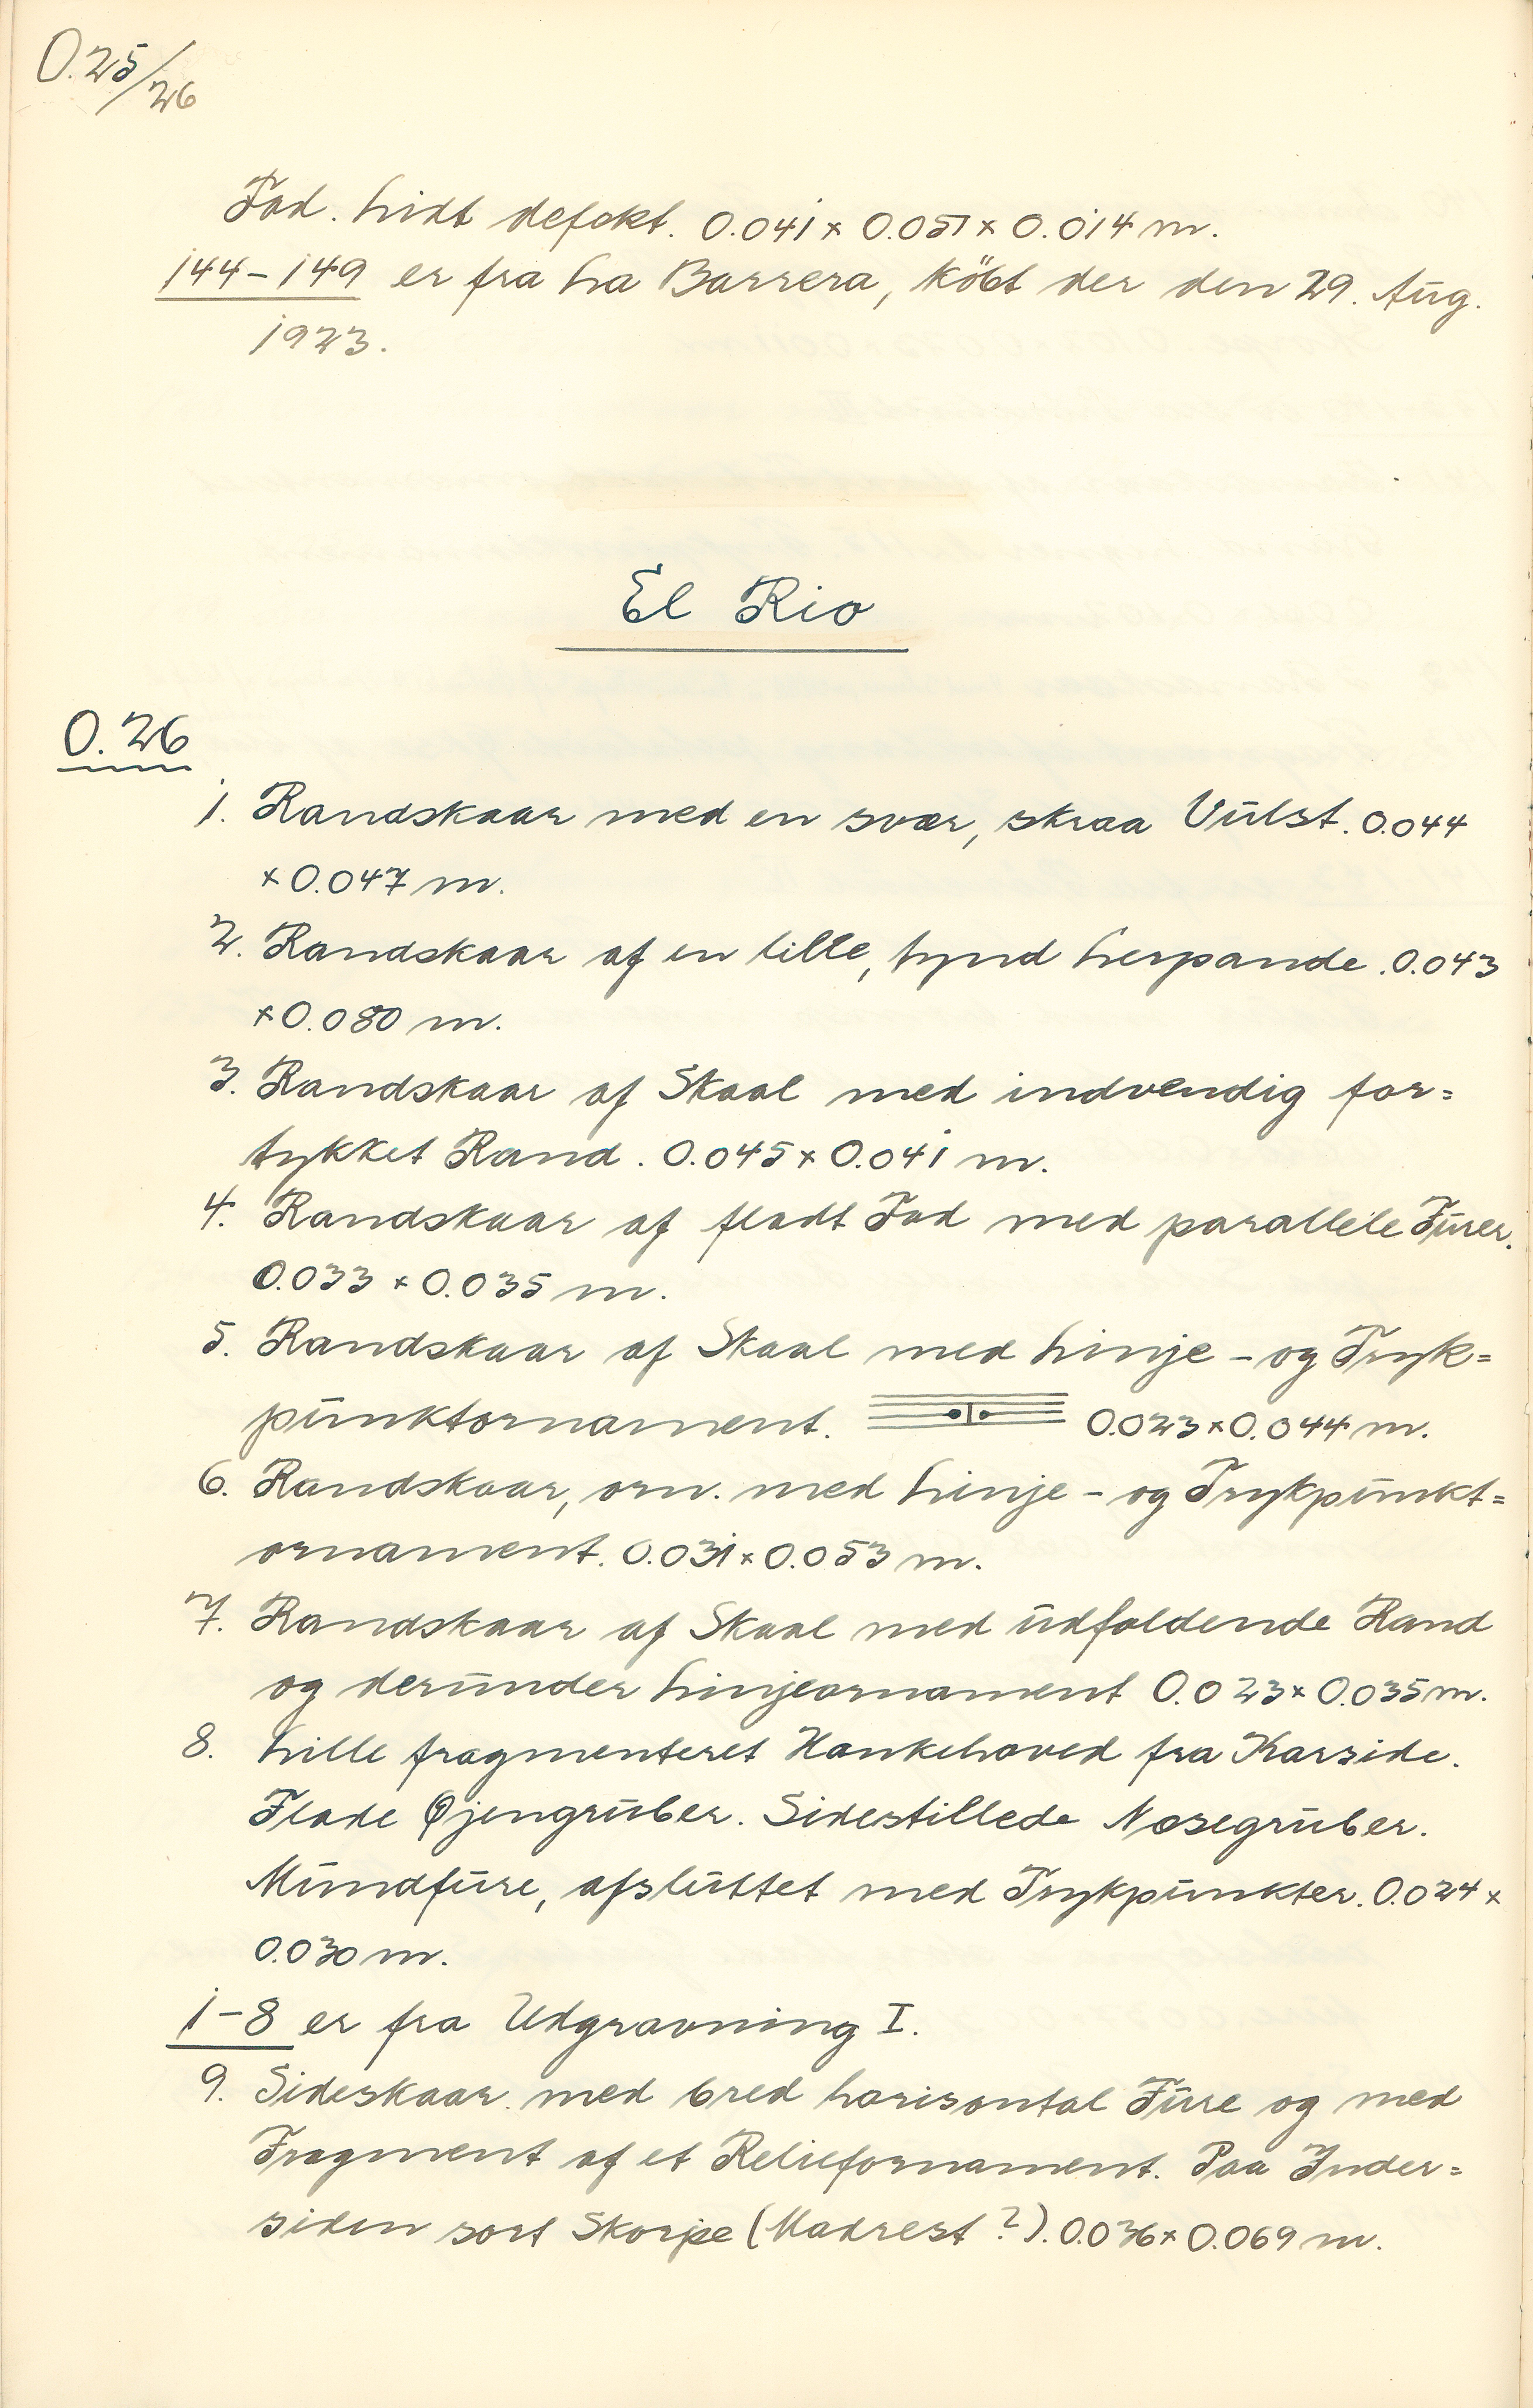 O.25/26
Fod. Lidt defekt. 0.041 × 0.051 × 0.014 m.
144–149 er fra La Barrera, köbt der den 29. Aug.
1923.
El Rio
O.26
1. Randskaar med en svær, skraa Vulst. 0.044
× 0.047 m.
2. Randskaar af en lille, tynd Lerpande. 0.043
× 0.080 m.
3. Randskaar af Skaal med indvendig for=
tykket Rand. 0.045 × 0.041 m.
4. Randskaar af fladt Fad med parallele Furer.
0.033 × 0.035 m.
5. Randskaar af Skaal med Linje- og Tryk=
punktornament. 0.023 × 0.044 m.
6. Randskaar, orn. med Linje- og Trykpunkt=
ornament. 0.031 × 0.053 m.
7. Randskaar af Skaal med udfaldende Rand
og derunder Linjeornament 0.023 × 0.035 m.
8. Lille fragmenteret Hankehoved fra Karside.
Flade Øjengruber. Sidestillede Næsegruber.
Mundfure, afsluttet med Trykpunkter. 0.024 ×
0.030 m.
1–8 er fra Udgravning I.
9. Sideskaar med bred horisontal Fure og med
Fragment af et Reliefornament. Paa Inder=
siden sort Skorpe (Madrest?). 0.036 × 0.069 m.